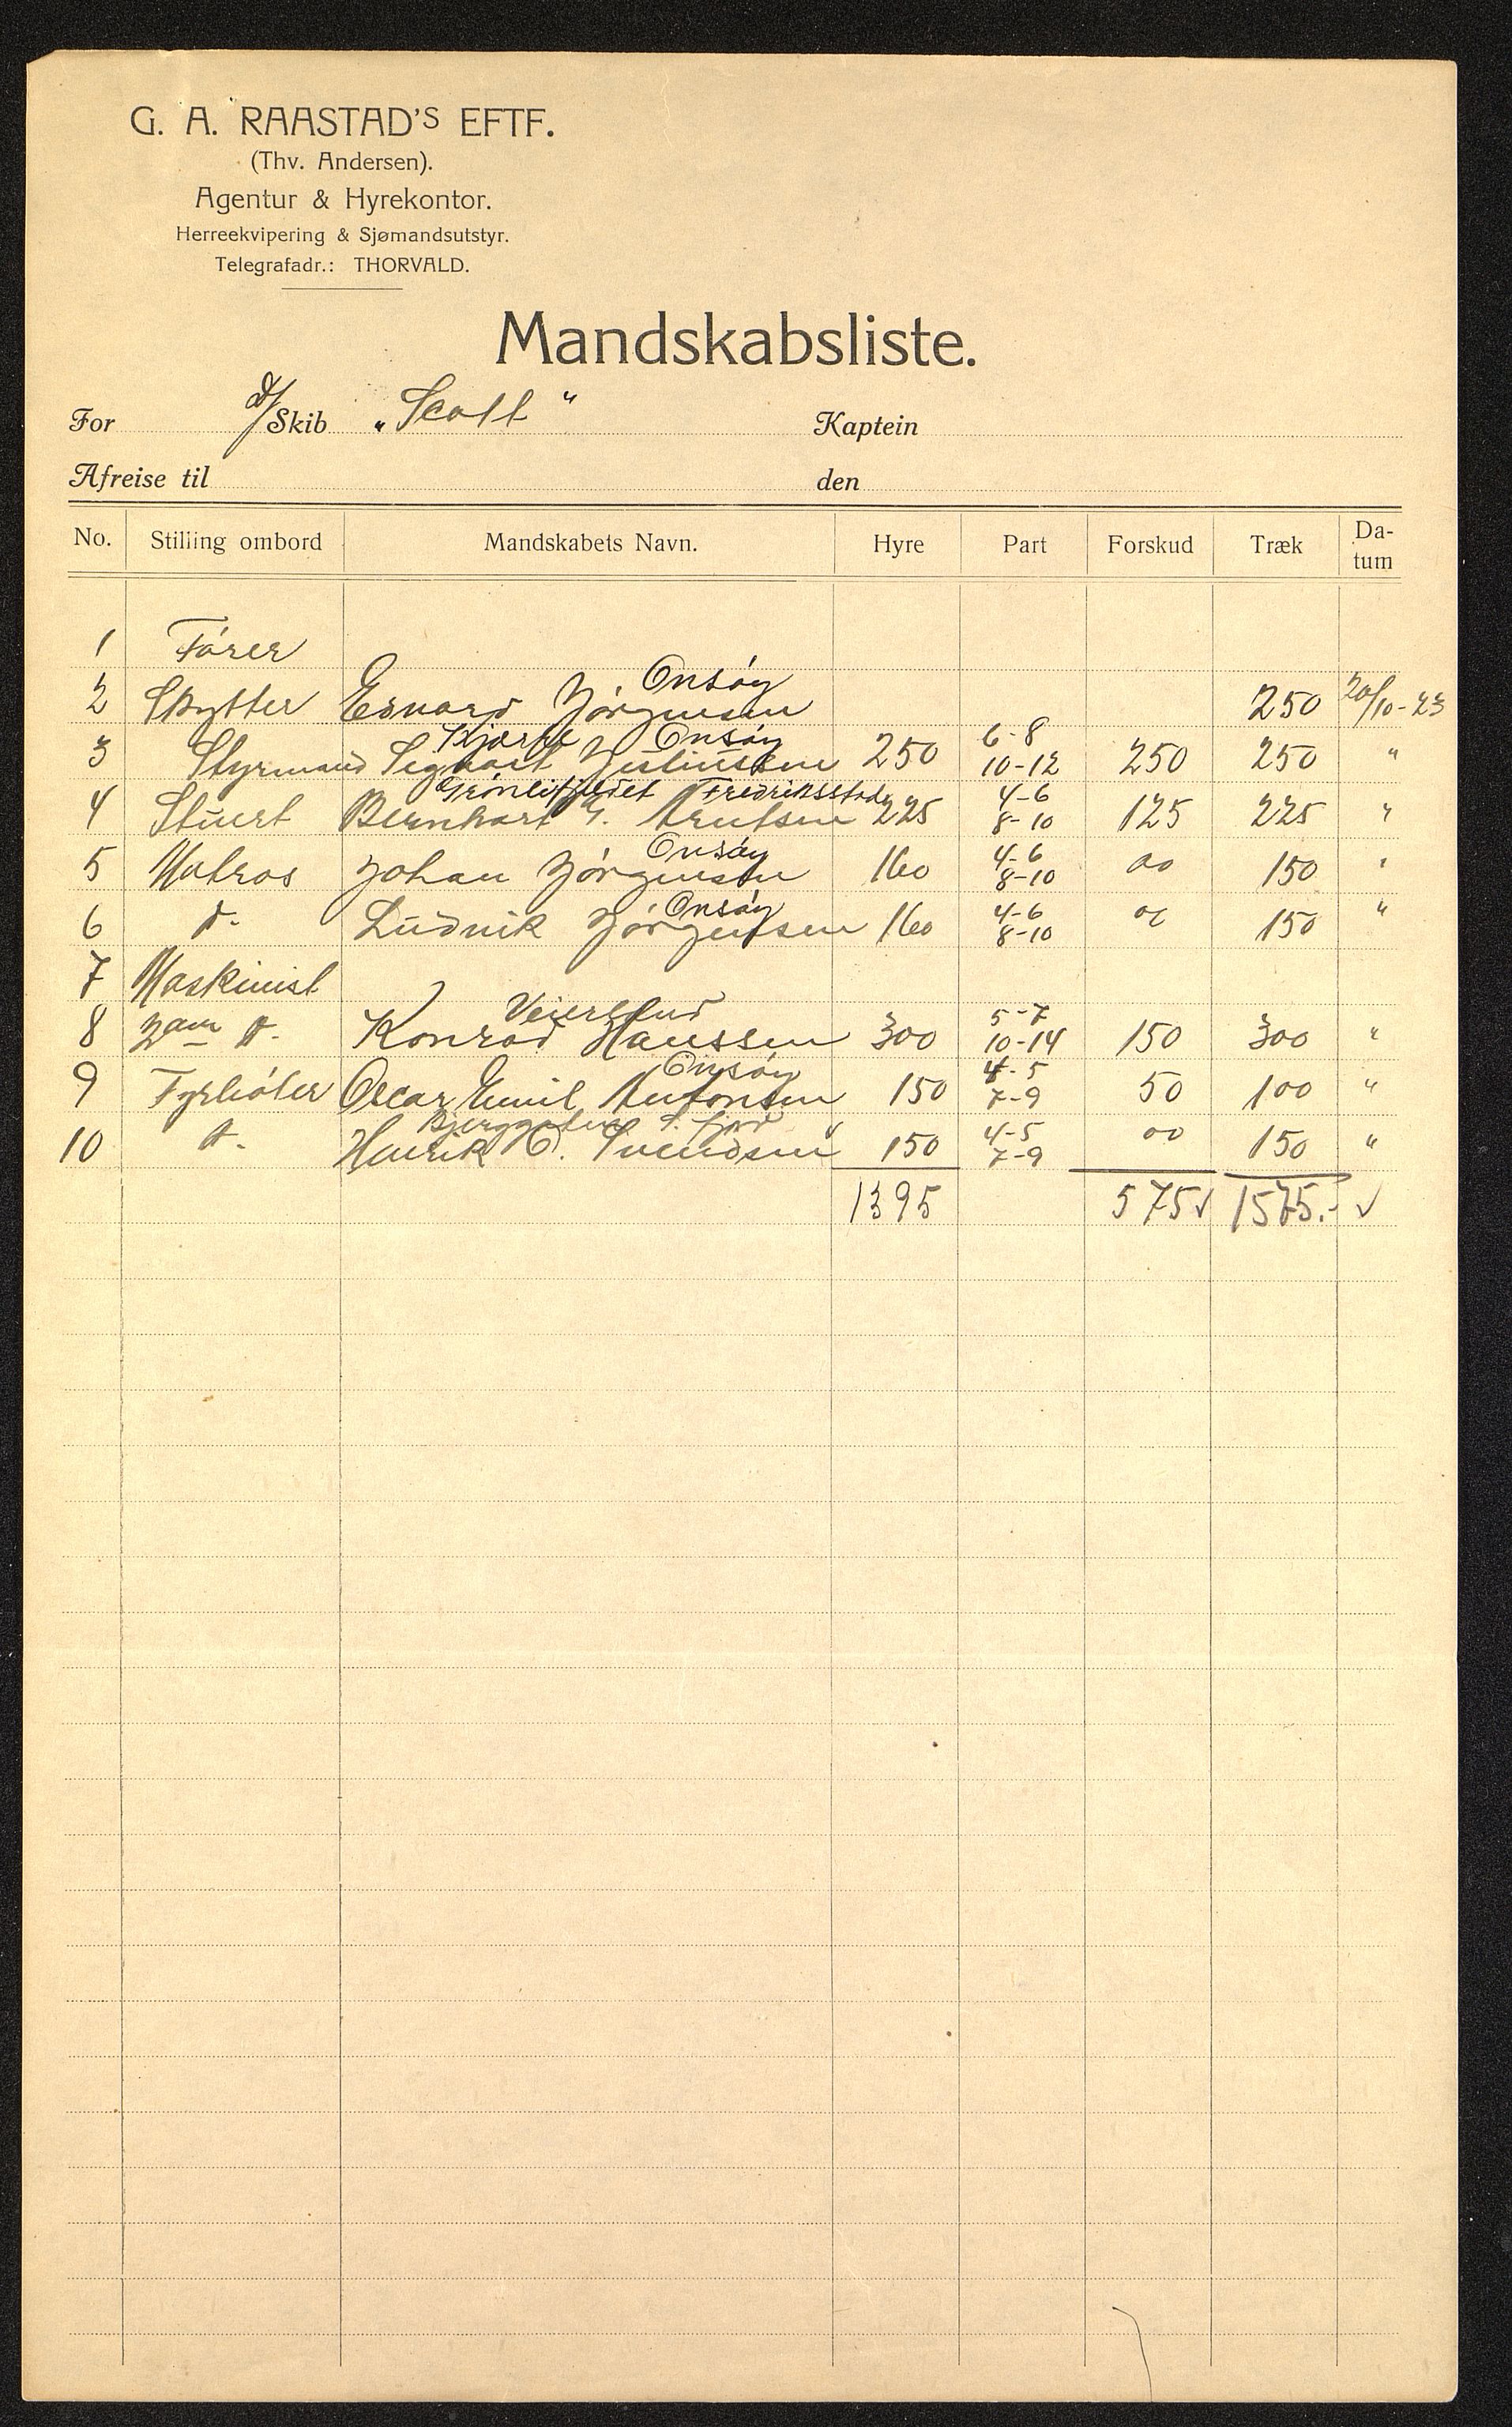 G. A. RAASTAD'S EFTF.
(Thv. Andersen).
Agentur & Hyrekontor.
Herreekvipering & Sjømandsutstyr.
Telegrafadr.: THORVALD.
Mandskabsliste.
For d/Skib „Scott“ Kaptein
Afreise til den
No. Stilling ombord Mandskabets Navn. Hyre Part Forskud Træk Da-tum
1 Förer
Onsöy
2 Skytter Edvard Jörgensen 250 20/10-23
Kjærre Onsöy 6-8
3 Styrmand Segvart Justinsen 250 10-12 250 250 "
Grönlifjeldet Fredriksstad 4-6
4 Stuert Bernhart G. Arntsen 225 8-10 125 225 "
Onsöy 4-6
5 Matros Johan Jörgensen 160 8-10 oo 150 "
Onsöy 4-6
6 d- Ludvik Jörgensen 160 8-10 oo 150 "
7 Maskinist
5-7
8 2den d- Konrad Hanssen 300 10-14 150 300 "
Onsöy 4-5
9 Fyrböter Oscar Emil Antonsen 150 7-9 50 100 "
Bjerggaten S. fjord 4-5
10 d- Henrik O. Svendsen 150 7-9 oo 150 "
1395 575 ✓ 1575.- ✓